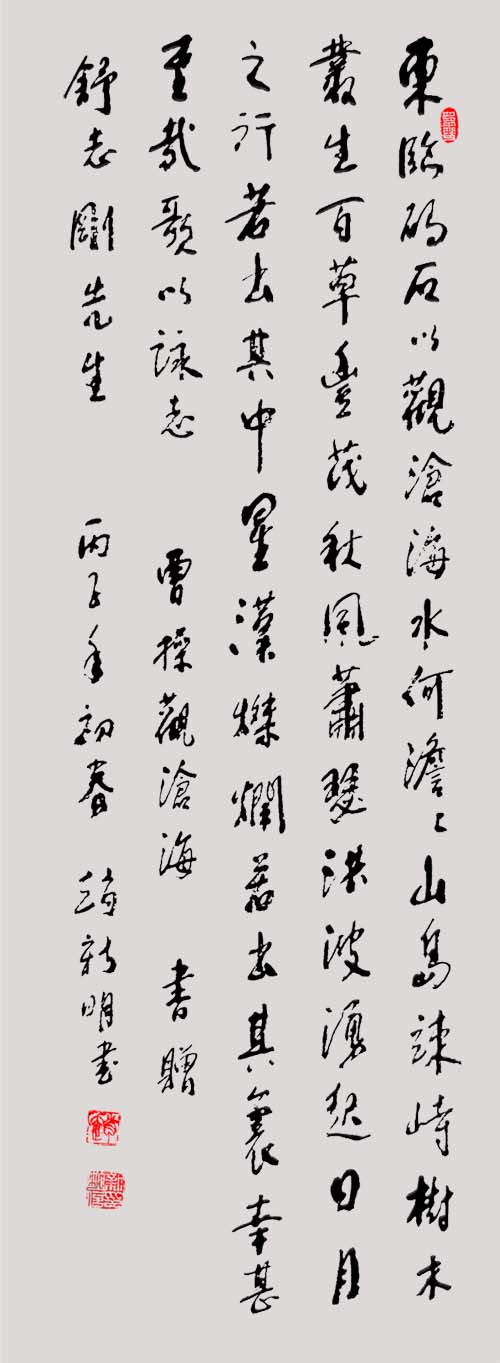 東臨碣石以觀滄海水何澹〻山島竦峙樹木
叢生百草豐茂秋風蕭瑟洪波湧起日月
之行若出其中星漢燦爛若出其裏幸甚
至哉歌以詠志 曹操觀滄海 書贈
舒志剛先生 丙子年初春 趙新明書